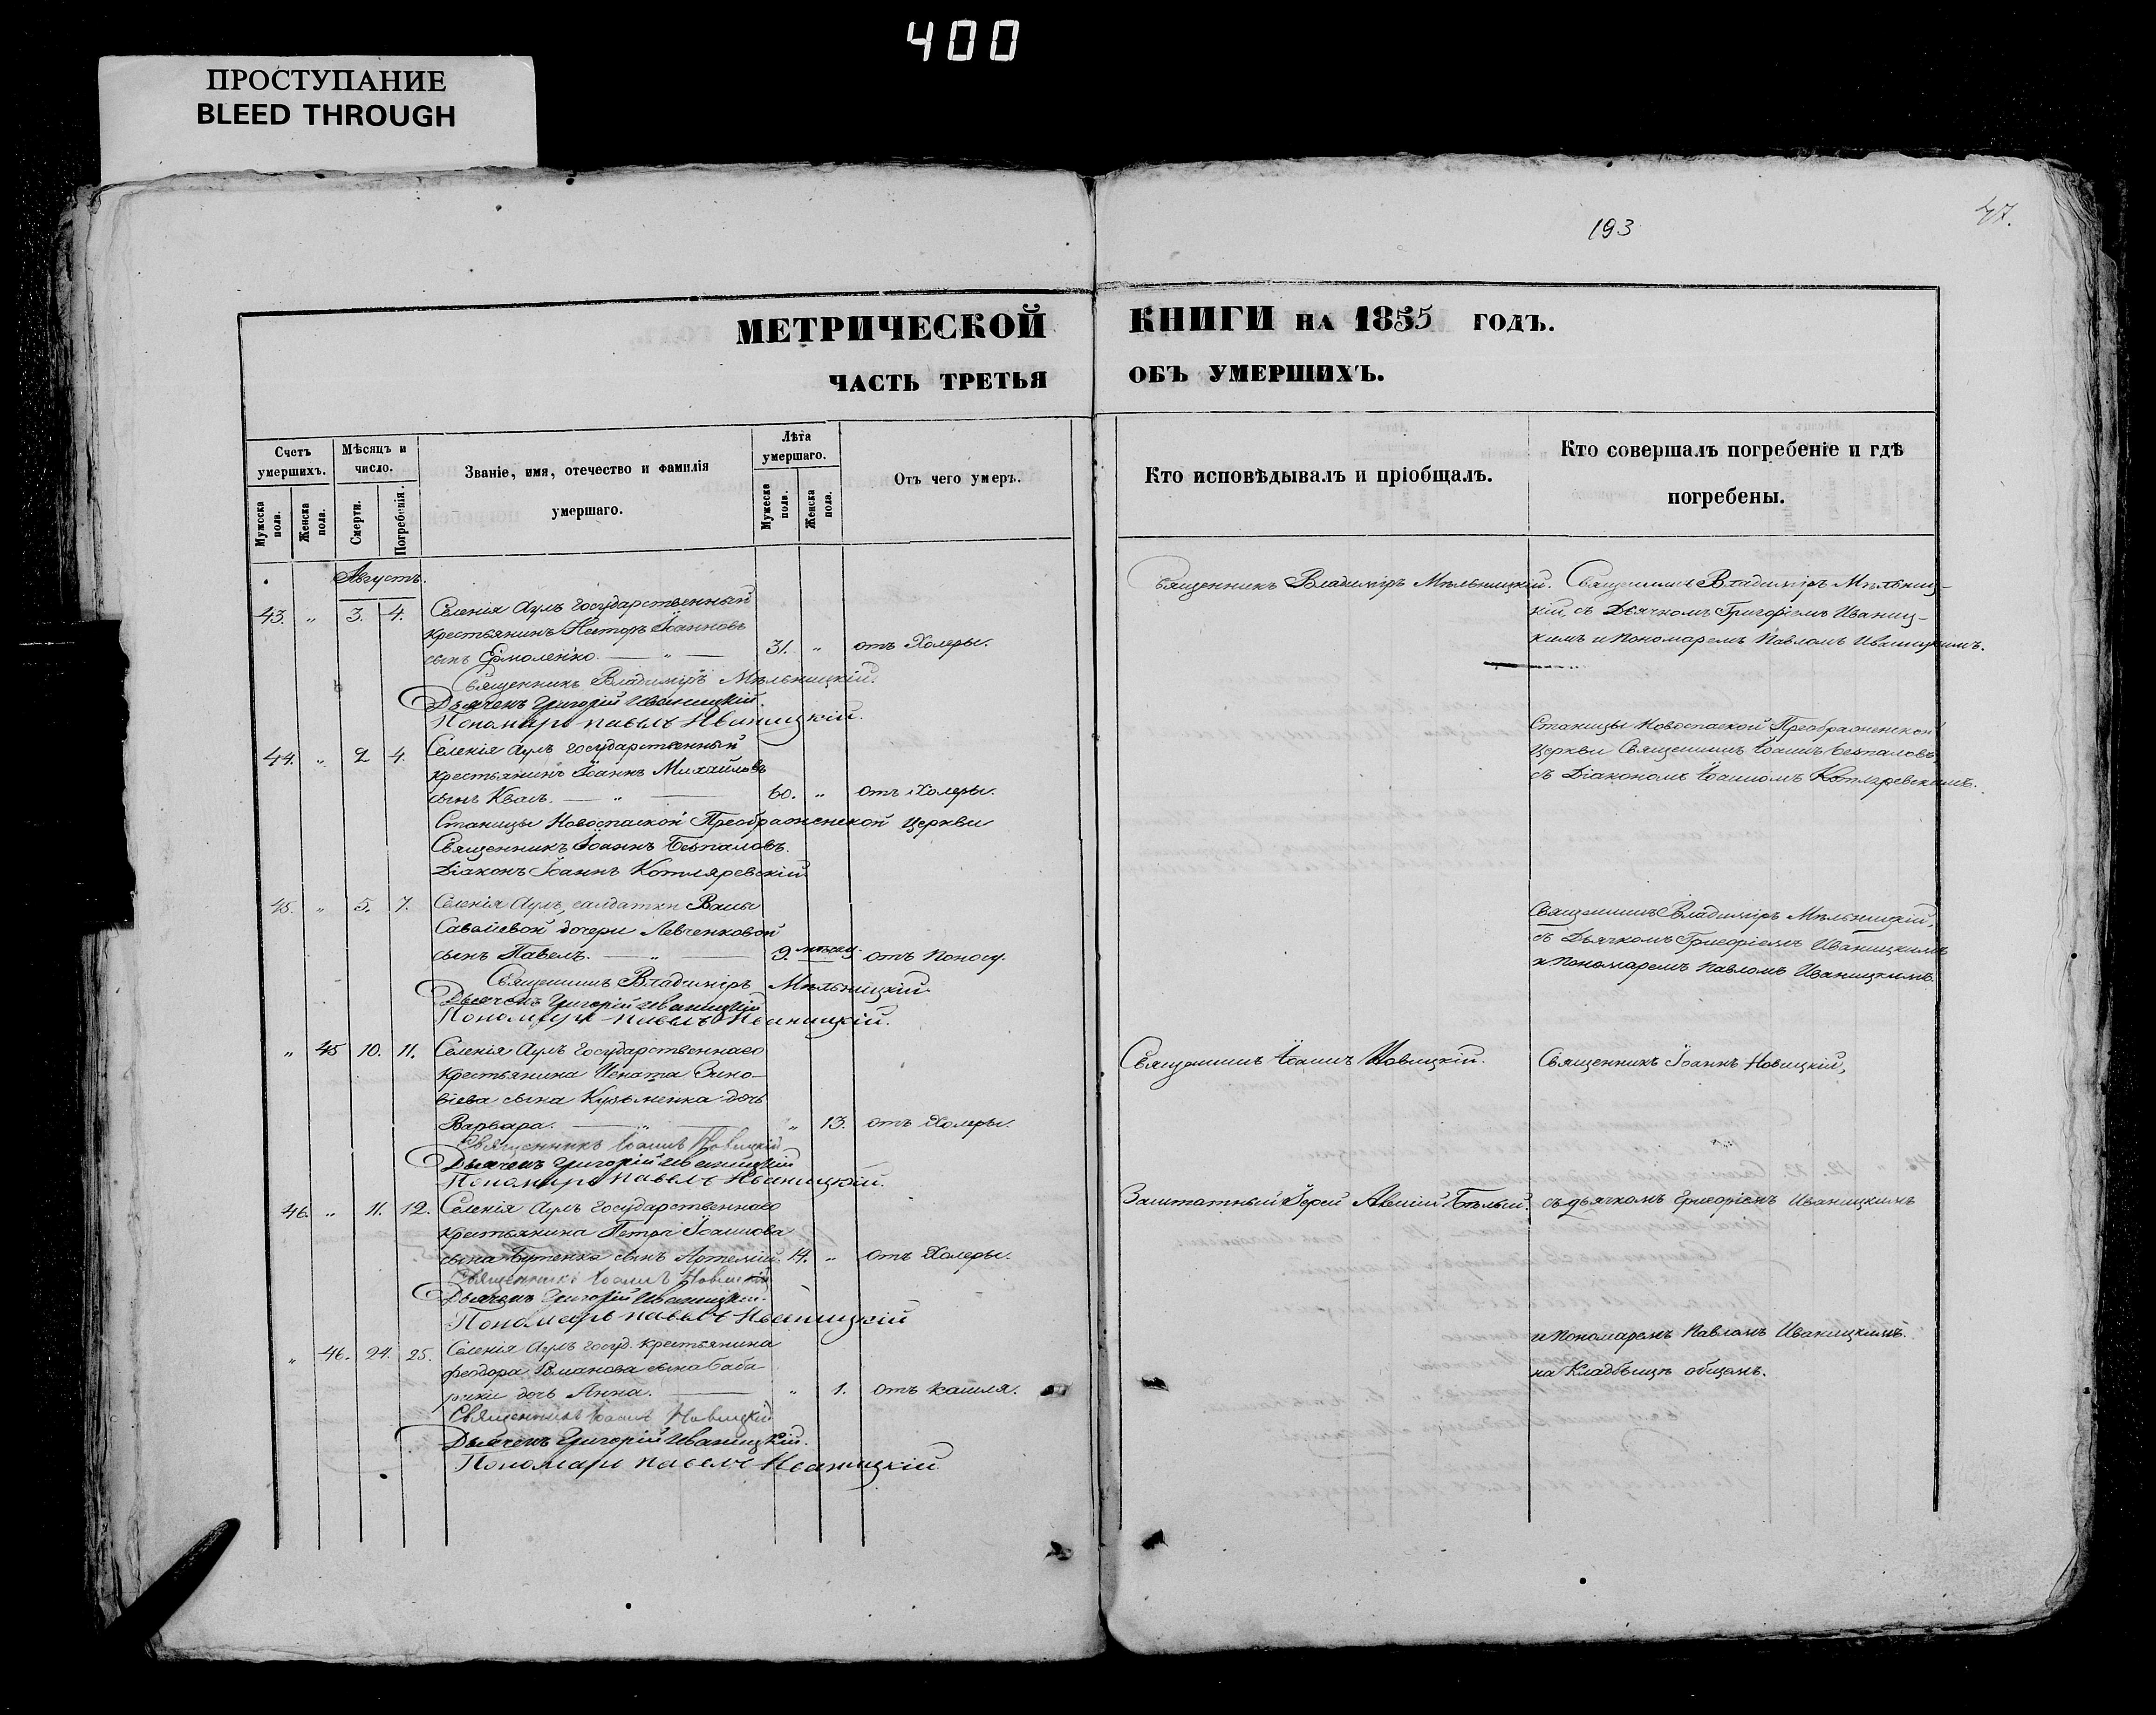 400
ПРОСТУПАНИЕ
BLEED THROUGH
193
47.
МЕТРИЧЕСКОЙ КНИГИ НА 1855 ГОДЪ.
ЧАСТЬ ТРЕТЬЯ ОБЪ УМЕРШИХЪ.
Счетъ умершихъ.
Мужеска пола.
Женска пола.
Мѣсяцъ и число.
Смерти.
Погребенія.
Званіе, имя, отечество и фамилія
умершаго.
Лѣта умершаго.
Мужеска пола.
Женска пола.
Отъ чего умеръ.
Кто исповѣдывалъ и пріобщалъ.
Кто совершалъ погребеніе и гдѣ
погребены.
Августъ.
43. " 3. 4. Селенія Аулъ государственный
крестьянинъ Несторъ Іоанновъ
сынъ Ермоленко. — " — 31. " отъ Холеры.
Священникъ Владиміръ Мѣльницкій.
Дьячекъ Григорій Иваницкій.
Пономарь Павелъ Иваницкій.
44. " 2 4. Селенія Аулъ государственный
крестьянинъ Іоаннъ Михайловъ
сынъ Квасъ. — " — 60. " отъ Холеры.
Станицы Новоспаской Преображенской Церкви
Священникъ Іоаннъ Безпаловъ.
Діаконъ Іоаннъ Котляревскій
45. " 5. 7. Селенія Аулъ, салдатки Вассы
Савайевой дочери Левченковой
сынъ Павелъ. — " — 9. мѣсяц. отъ Поносу.
Священникъ Владиміръ Мѣльницкій.
Дьячекъ Григорій Иваницкій
Пономарь Павелъ Иваницкій.
" 45 10. 11. Селенія Аулъ государственнаго
крестьянина Игната Зино-
віева сына Кузьменка дочь
Варвара. — " — " 13. отъ Холеры.
Священникъ Іоаннъ Новицкій
Дьячекъ Григорій Иваницкій
Пономарь Павелъ Иваницкій.
46. " 11. 12. Селенія Аулъ государственнаго
крестьянина Петра Іоаннова
сына Бутенка сынъ Артемій. 14. " отъ Холеры.
Священникъ Іоаннъ Новицкій
Дьячекъ Григорій Иваницкій.
Пономарь Павелъ Иваницкій
" 46. 24. 25. Селенія Аулъ госуд. крестьянина
Феодора Романова сына Баба-
рики дочь Анна. — " 1. отъ кашля.
Священникъ Іоаннъ Новицкій
Дьячекъ Григорій Иваницкій.
Пономарь Павелъ Иваницкій
Священникъ Владиміръ Мѣльницкій.
Священникъ Владиміръ Мѣльниц-
кій, съ Дьячкомъ Григоріемъ Иваниц-
кимъ и Пономаремъ Павломъ Иваницкимъ.
Станицы Новоспаской Преображенской
Церкви Священникъ Іоаннъ Безпаловъ,
съ Діакономъ Іоанномъ Котляревскимъ.
Священникъ Владиміръ Мѣльницкій,
съ Дьячкомъ Григоріемъ Иваницкимъ
и Пономаремъ Павломъ Иваницкимъ.
Священникъ Іоаннъ Новицкій.
Священникъ Іоаннъ Новицкій,
Заштатный Іерей Бѣлый.
съ дьячкомъ Григоріемъ Иваницкимъ
и Пономаремъ Павломъ Иваницкимъ.
на Кладбищѣ общемъ.